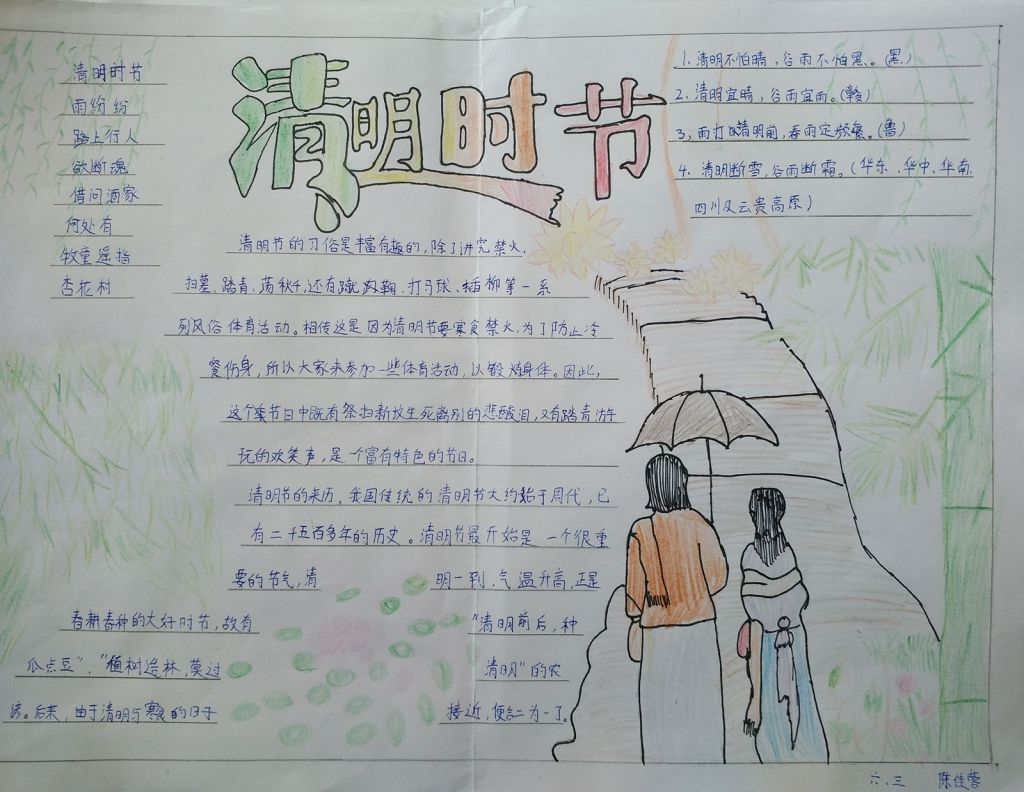 清明时节
清明时节
雨纷纷
路上行人
欲断魂
借问酒家
何处有
牧童遥指
杏花村
1、清明不怕晴、谷雨不怕黑。(黑)
2、清明宜晴，谷雨宜雨。(赣)
3、雨打清明前，春雨定频繁。(鲁)
4、清明断雪，谷雨断霜。(华东、华中、华南、
四川及云贵高原)
清明节的习俗是丰富有趣的，除了讲究禁火、
扫墓、踏青、荡秋千，还有蹴鞠、打马球、插柳等一系
列风俗体育活动。相传这是因为清明节要寒食禁火，为了防止冷
餐伤身，所以大家来参加一些体育活动，以锻炼身体。因此，
这个节日中既有祭扫新坟生死离别的悲酸泪，又有踏青游
玩的欢笑声，是个富有特色的节日。
清明节的来历，我国传统的清明节大约始于周代，已
有二千五百多年的历史。清明节最开始是一个很重
要的节气，清明一到，气温升高，正是
春耕春种的大好时节，故有"清明前后，种
瓜点豆"、"植树造林，莫过清明"的农
谚。后来，由于清明与寒食的日子接近，便合二为一了。
六、三 陈佳蓉